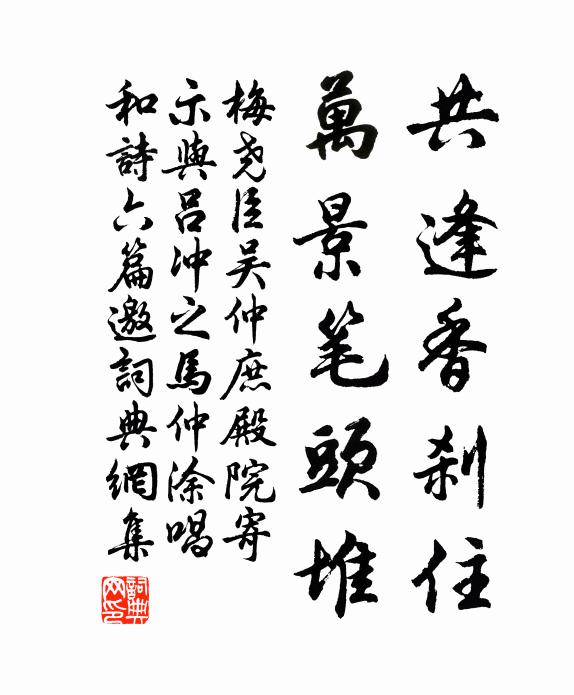 共逢香刹住
萬景笔頭堆
梅尧臣吴仲庶殿院寄
示與吕冲之馬仲涂唱
和詩六篇邀詞典網集
詞典
网印